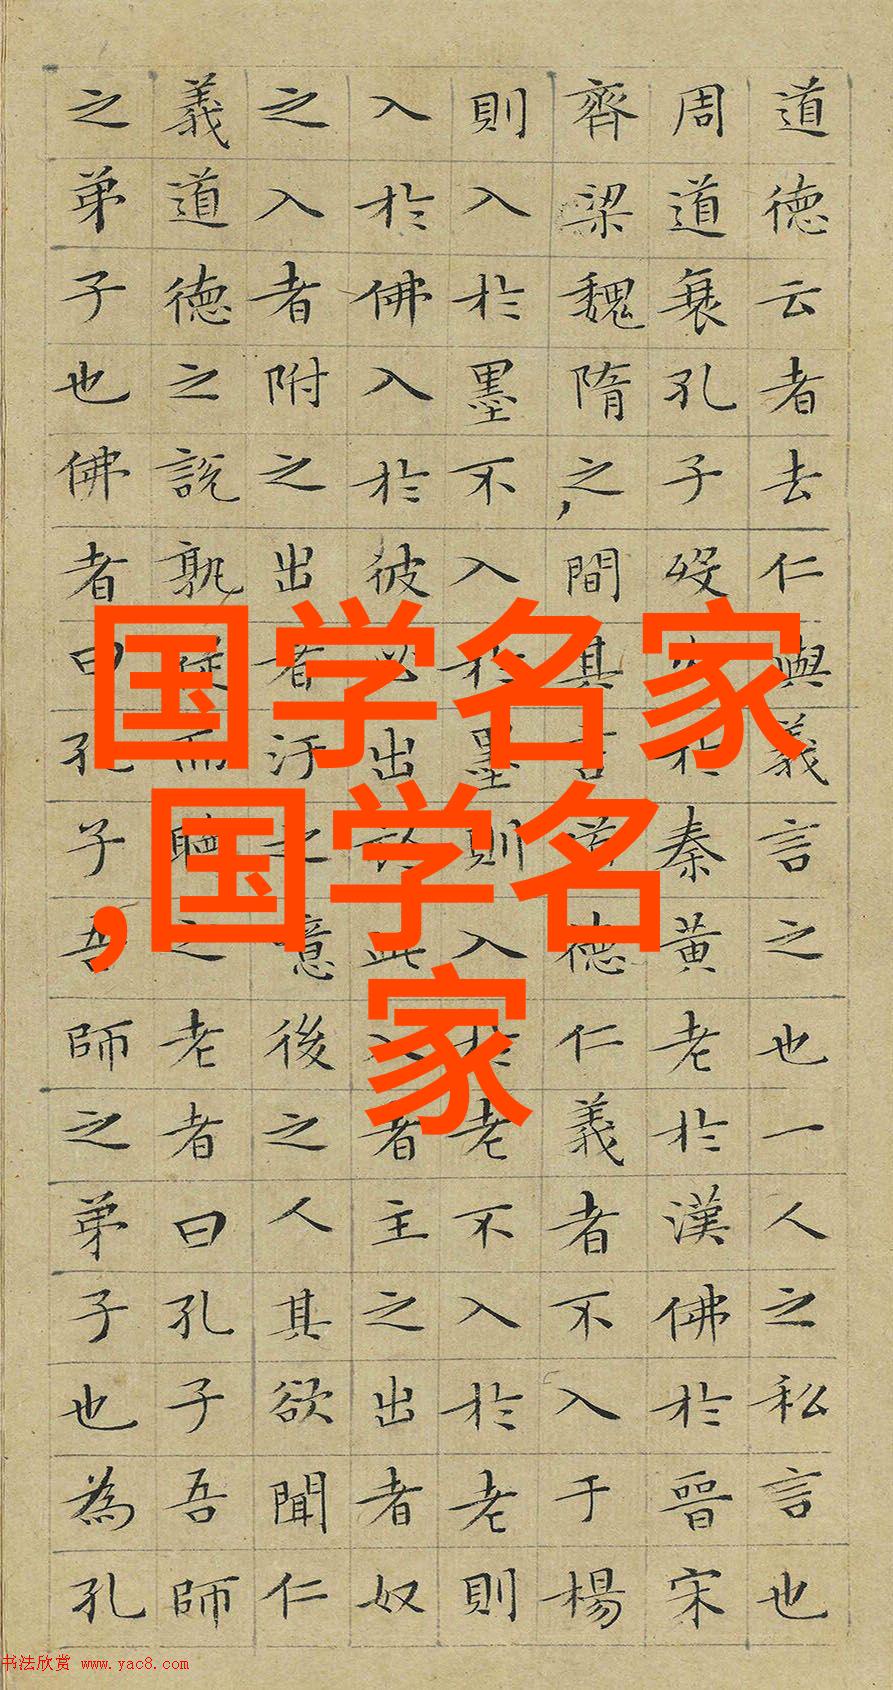 道德云者去仁與義言之也一人之私言也
周道衰孔子歿火於秦黄老於漢佛於晉宋
齊梁魏隋之間其言道德仁義者不入于楊
則入於墨不入於墨則入於老不入於老則
入於佛入於彼必出於此入者主之出者奴
之入者附之出者汙之噫後之人其欲聞仁
義道德之說孰從而聽之老者曰孔子吾師
之弟子也佛者曰孔子吾師之弟子也為孔
国学名家
,国学名
家
书法欣赏 www.yac8.com